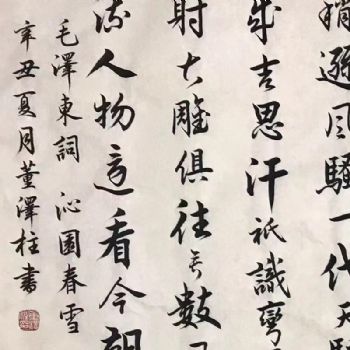 稍遜风騷一代天
成吉思汗祇識彎
射大雕俱往矣數
流人物還看今朝
毛澤東詞 沁園春雪
辛丑夏月董澤柱書